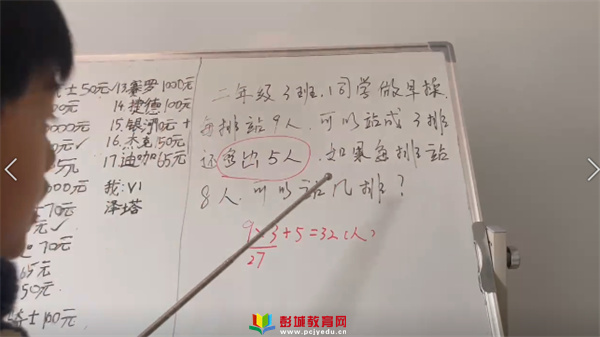 士50元
00元
0000元
5元
000元
=70元
元
70元
65元
50元
士100元
13.赛罗1000元
14.捷德100元
15.银河10元+
16.杰克.50元
17.迪咖65元
我:V1
泽塔
二年级3班.同学做早操.
每排站9人.可以站成3排
还多出5人.如果每排站
8人.可以站几排?
9×3+5=32(人)
27
彭城教育网
www.pcjyedu.cn